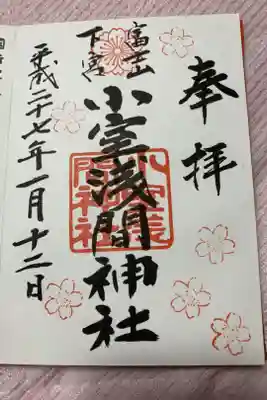 奉拝
富士山
下宮
小室浅間神社
平成二十七年一月十二日